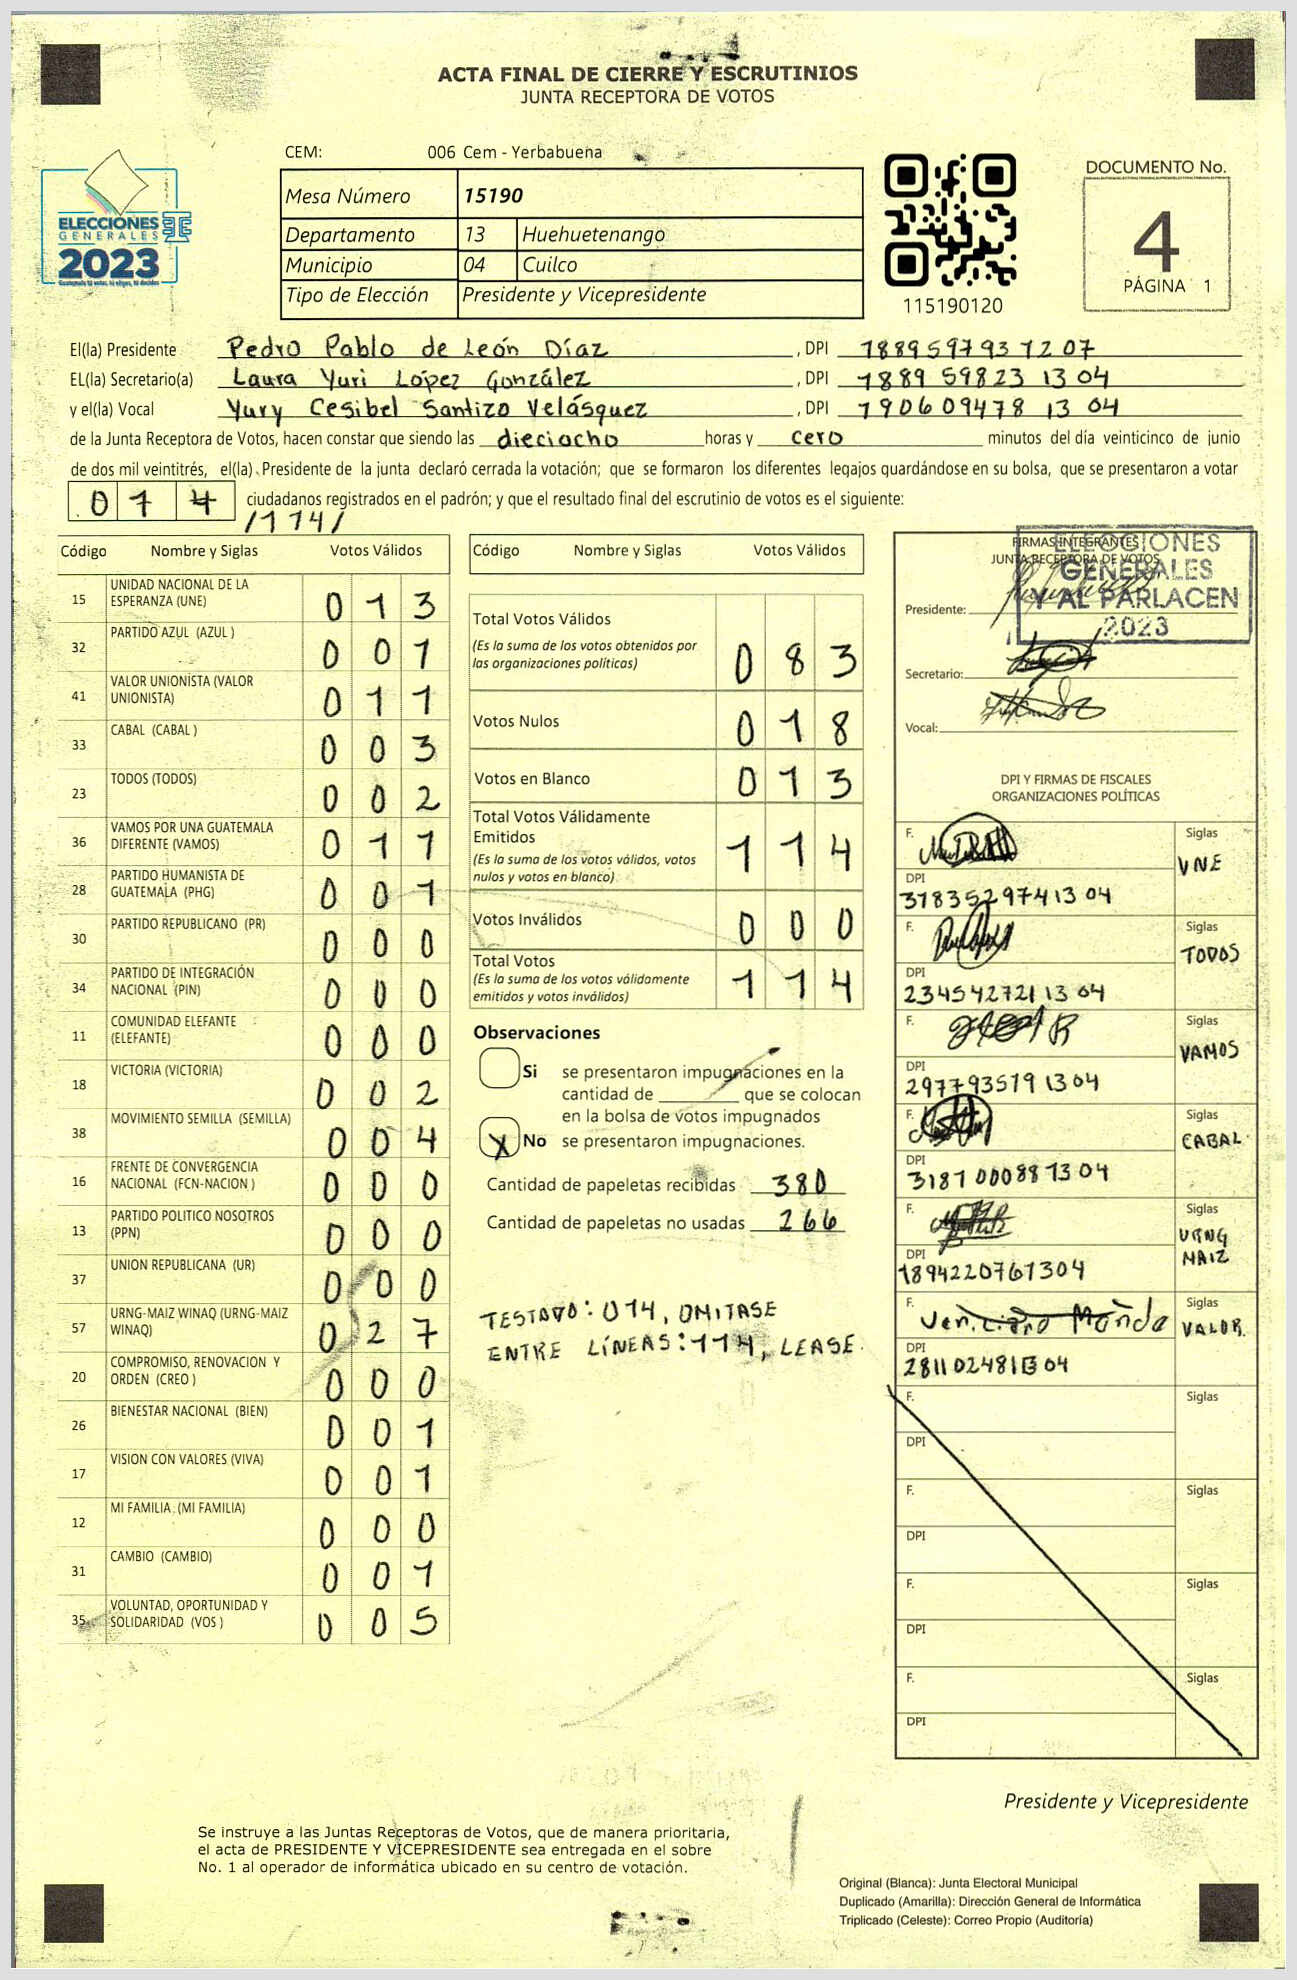 ACTA FINAL DE CIERRE Y ESCRUTINIOS
JUNTA RECEPTORA DE VOTOS
CEM: 006 Cem - Yerbabuena
ELECCIONES
GENERALES
2023
Mesa Número 15190
Departamento 13 Huehuetenango
Municipio 04 Cuilco
Tipo de Elección Presidente y Vicepresidente
115190120
DOCUMENTO No.
4
PÁGINA 1
El(la) Presidente Pedro Pablo de León Díaz , DPI 1889597931207
EL(la) Secretario(a) Laura Yuri López González , DPI 1889 59823 1304
y el(la) Vocal Yury Cesibel Santizo Velásquez , DPI 190609478 13 04
de la Junta Receptora de Votos, hacen constar que siendo las dieciocho horas y cero minutos del día veinticinco de junio
de dos mil veintitrés, el(la) Presidente de la junta declaró cerrada la votación; que se formaron los diferentes legajos guardándose en su bolsa, que se presentaron a votar
0 1 4 ciudadanos registrados en el padrón; y que el resultado final del escrutinio de votos es el siguiente:
/114/
Código Nombre y Siglas Votos Válidos
15 UNIDAD NACIONAL DE LA ESPERANZA (UNE) 0 1 3
32 PARTIDO AZUL (AZUL ) 0 0 1
41 VALOR UNIONISTA (VALOR UNIONISTA) 0 1 1
33 CABAL (CABAL ) 0 0 3
23 TODOS (TODOS) 0 0 2
36 VAMOS POR UNA GUATEMALA DIFERENTE (VAMOS) 0 1 1
28 PARTIDO HUMANISTA DE GUATEMALA (PHG) 0 0 1
30 PARTIDO REPUBLICANO (PR) 0 0 0
34 PARTIDO DE INTEGRACIÓN NACIONAL (PIN) 0 0 0
11 COMUNIDAD ELEFANTE (ELEFANTE) 0 0 0
18 VICTORIA (VICTORIA) 0 0 2
38 MOVIMIENTO SEMILLA (SEMILLA) 0 0 4
16 FRENTE DE CONVERGENCIA NACIONAL (FCN-NACION ) 0 0 0
13 PARTIDO POLITICO NOSOTROS (PPN) 0 0 0
37 UNION REPUBLICANA (UR) 0 0 0
57 URNG-MAIZ WINAQ (URNG-MAIZ WINAQ) 0 2 7
20 COMPROMISO, RENOVACION Y ORDEN (CREO ) 0 0 0
26 BIENESTAR NACIONAL (BIEN) 0 0 1
17 VISION CON VALORES (VIVA) 0 0 1
12 MI FAMILIA (MI FAMILIA) 0 0 0
31 CAMBIO (CAMBIO) 0 0 1
35 VOLUNTAD, OPORTUNIDAD Y SOLIDARIDAD (VOS ) 0 0 5
Código Nombre y Siglas Votos Válidos
Total Votos Válidos 0 8 3
(Es la suma de los votos obtenidos por
las organizaciones políticas)
Votos Nulos 0 1 8
Votos en Blanco 0 1 3
Total Votos Válidamente
Emitidos 1 1 4
(Es la suma de los votos válidos, votos
nulos y votos en blanco)
Votos Inválidos 0 0 0
Total Votos 1 1 4
(Es la suma de los votos válidamente
emitidos y votos inválidos)
Observaciones
Si se presentaron impugnaciones en la
cantidad de ________ que se colocan
en la bolsa de votos impugnados
X No se presentaron impugnaciones.
Cantidad de papeletas recibidas 380
Cantidad de papeletas no usadas 266
TESTADO: 014, OMITASE
ENTRE LÍNEAS: 114, LEASE.
FIRMAS INTEGRANTES
JUNTA RECEPTORA DE VOTOS
ELECCIONES
GENERALES
Y AL PARLACEN
2023
Presidente:
Secretario:
Vocal:
DPI Y FIRMAS DE FISCALES
ORGANIZACIONES POLÍTICAS
F. Siglas
UNE
DPI
318352974 13 04
F. Siglas
TODOS
DPI
234542721 13 04
F. Siglas
VAMOS
DPI
297793519 1304
F. Siglas
CABAL
DPI
3181 00088 1304
F. Siglas
URNG
MAIZ
DPI
1894220761304
F. Siglas
VALOR
DPI
281102481 1304
F. Siglas
DPI
F. Siglas
DPI
F. Siglas
DPI
F. Siglas
DPI
Presidente y Vicepresidente
Se instruye a las Juntas Receptoras de Votos, que de manera prioritaria,
el acta de PRESIDENTE Y VICEPRESIDENTE sea entregada en el sobre
No. 1 al operador de informática ubicado en su centro de votación.
Original (Blanca): Junta Electoral Municipal
Duplicado (Amarilla): Dirección General de Informática
Triplicado (Celeste): Correo Propio (Auditoría)